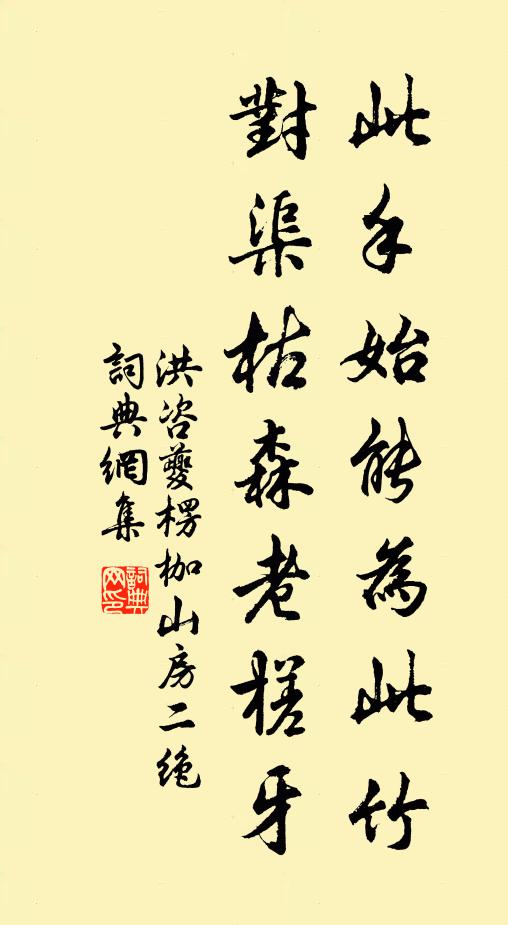 此手始能為此竹
對渠枯森老槎牙
洪咨夔楞枷山房二絕
詞典網集
詞典網印